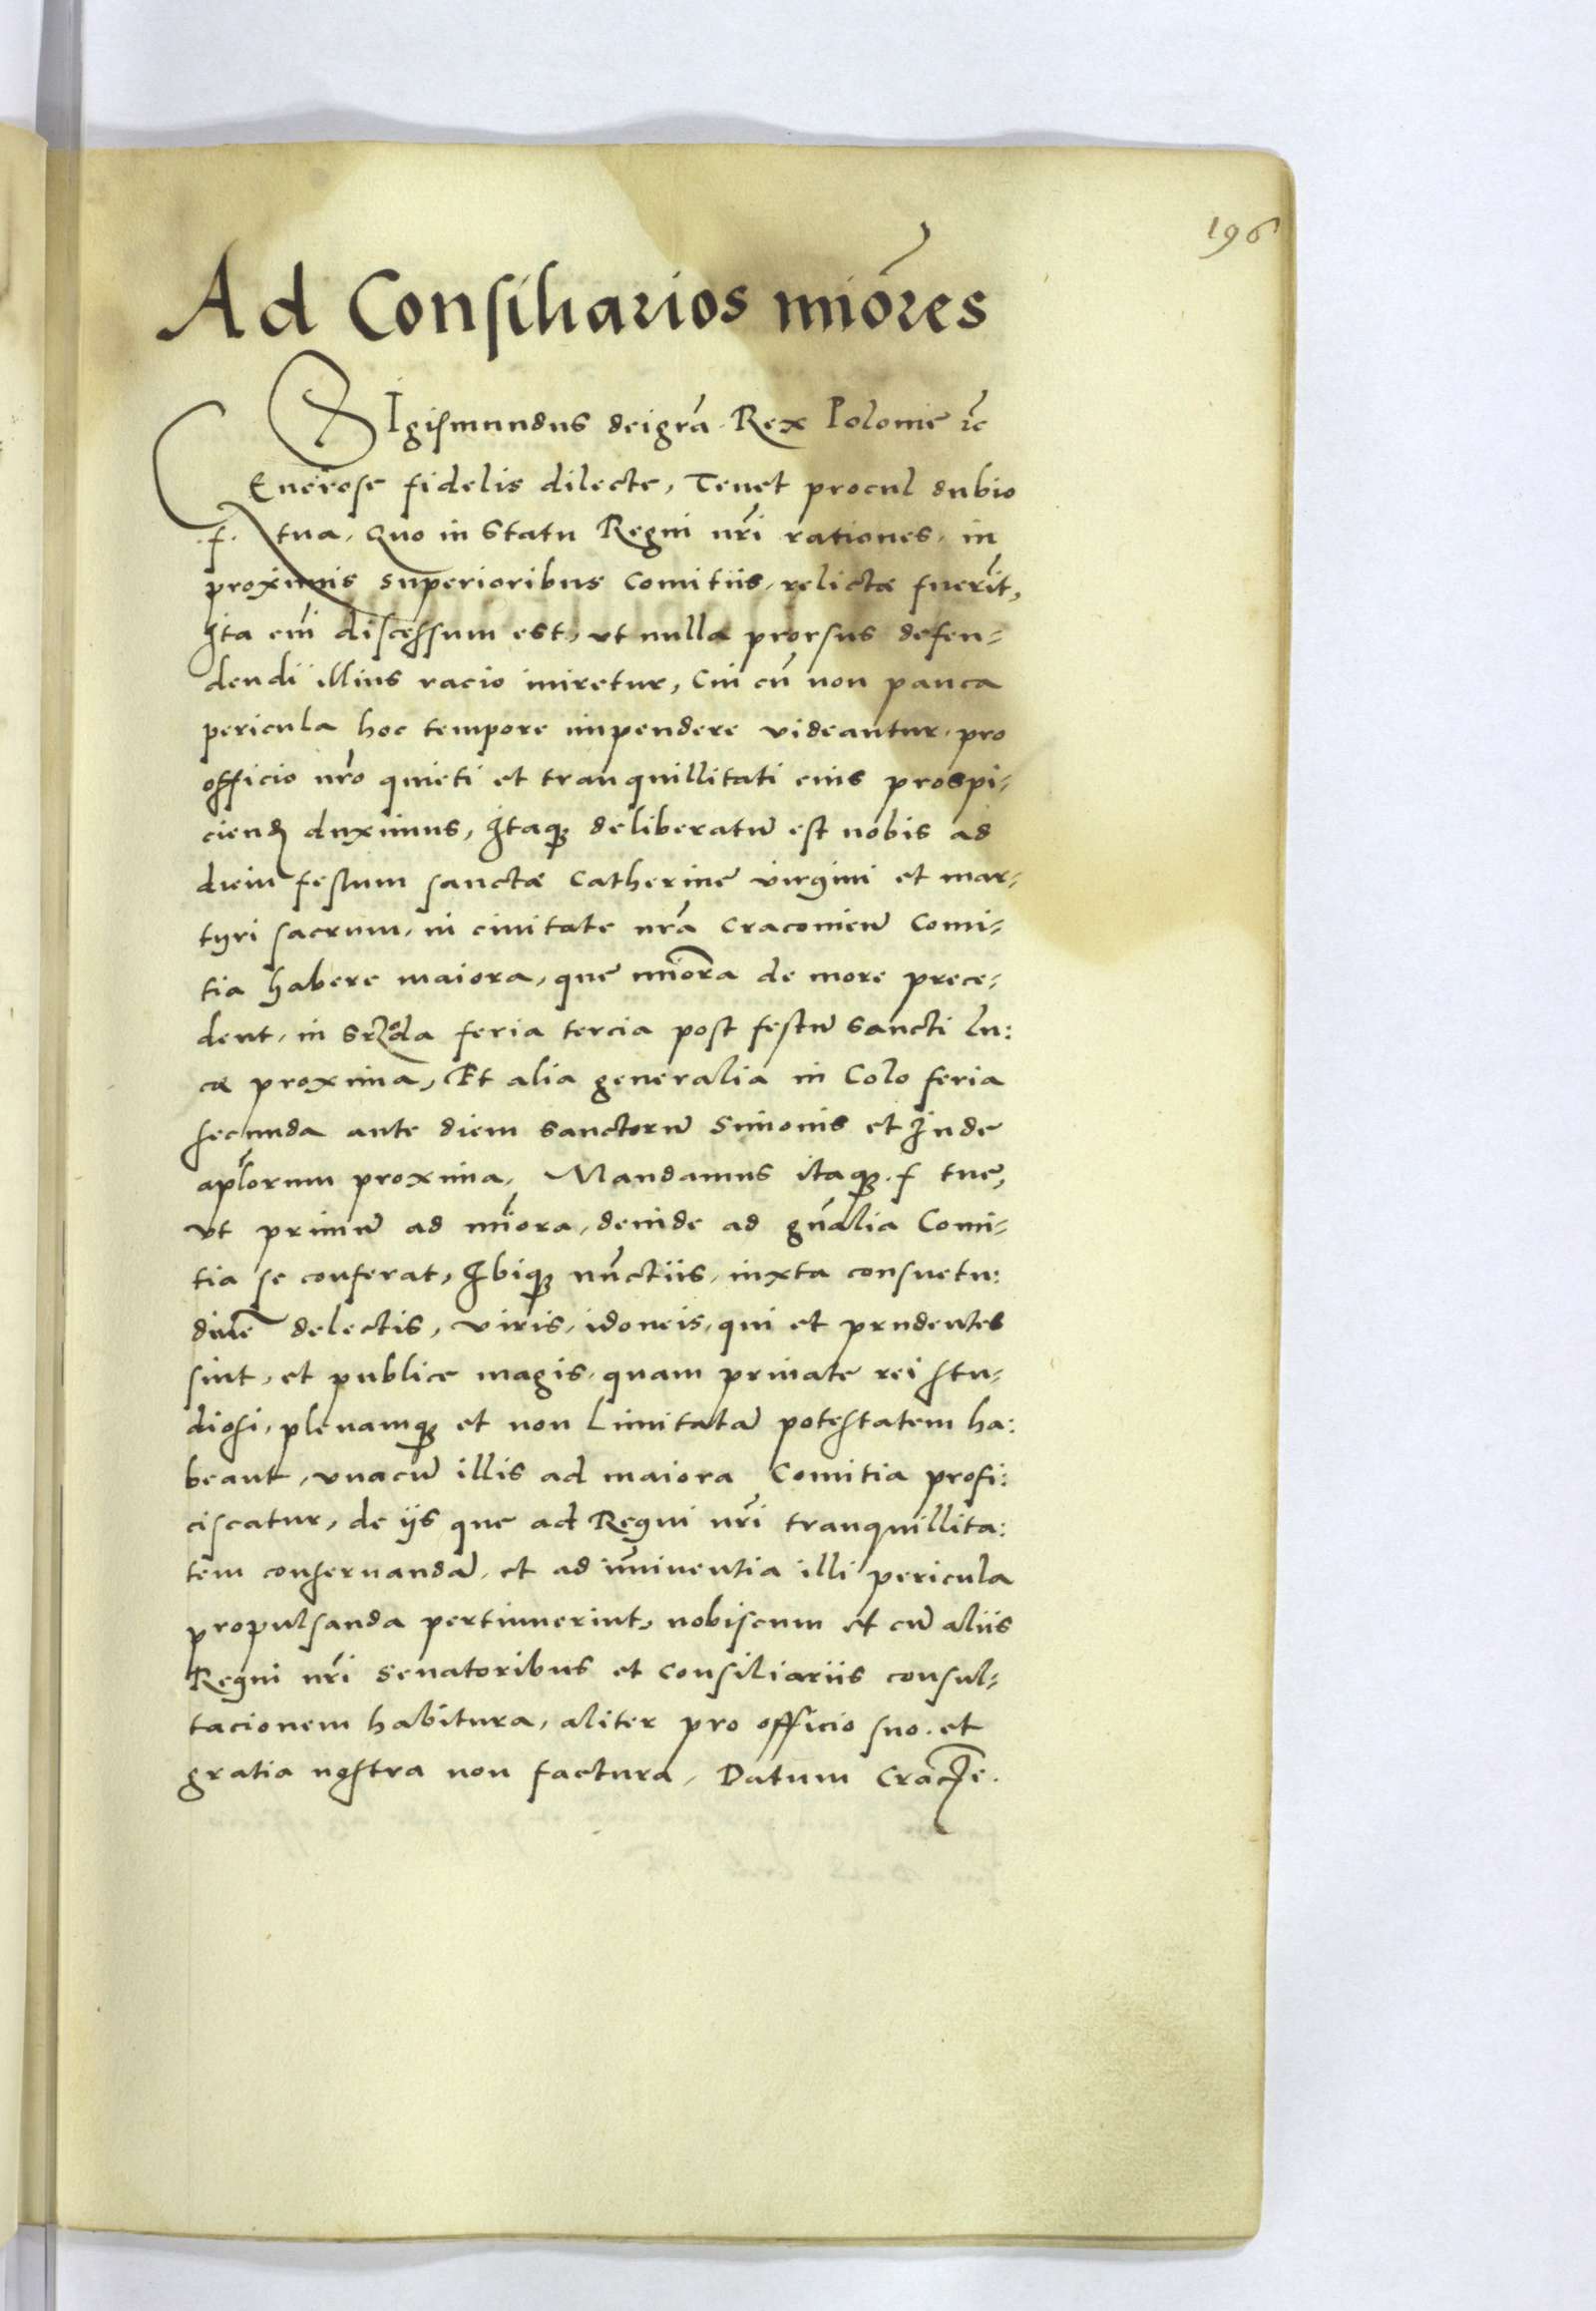 196
Ad Consiliarios miōres
SIgismundus dei grā. Rex Polonie ꝛc̄
Generose fidelis dilecte, Tenet procul dubio
.f. tua, Quo in statu Regni nr̄i rationes, in
proximis superioribus Comitiis, relictæ fuerīt,
Ita em̄ discessum est, ut nulla prorsus defen-
dendi illius racio iniretur, Cui cū non pauca
pericula hoc tempore impendere videantur, pro
officio nr̄o quieti et tranquillitati eius prospi-
ciendū duximus, Itaqꝫ deliberatū est nobis ad
diem festum sanctæ Catherinę virgini et mar-
tyri sacrum, in civitate nr̄a Cracovien̄ Comi-
tia habere maiora, quę miōra de more prece-
dent, in Srzoda feria tercia post festū Sancti Lu:
cæ proxima, Et alia generalia in Colo feria
secunda ante diem sanctorū Simonis et Iudę
apl̄orum proxima, Mandamus itaqꝫ .f tuę,
ut primū ad mīora, deinde ad gn̄alia Comi-
tia se conferat, Ibiqꝫ nūctiis, iuxta consuetu:
dinē delectis, viris, idoneis, qui et prudentes
sint, et publice magis, quam privatę rei stu-
diosi, plenamqꝫ et non Limitatā potestatem ha:
beant, unacū illis ad maiora Comitia profi:
ciscatur, de iis quę ad Regni nr̄i tranquillita:
tem conservandā, et ad im̄inentia illi pericula
propulsanda pertinuerint, nobiscum et cū aliis
Regni nr̄i Senatoribus et Consiliariis consul-
tacionem habitura, aliter pro officio suo. et
gratia nostra non factura, Datum Craco͞e.